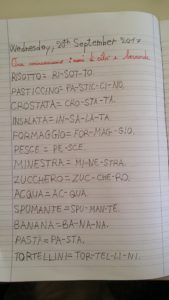 Wednesday, 20th September 2017
RISOTTO= RI-SOT-TO.
PASTICCINO= PA-STIC-CI-NO.
CROSTATA= CRO-STA-TA.
INSALATA= IN-SA-LA-TA.
FORMAGGIO= FOR-MAG-GIO.
PESCE= PE-SCE.
MINESTRA= MI-NE-STRA.
ZUCCHERO= ZUC-CHE-RO.
ACQUA= AC-QUA.
SPUMANTE= SPU-MAN-TE.
BANANA= BA-NA-NA.
PASTA= PA-STA.
TORTELLINI= TOR-TEL-LI-NI.